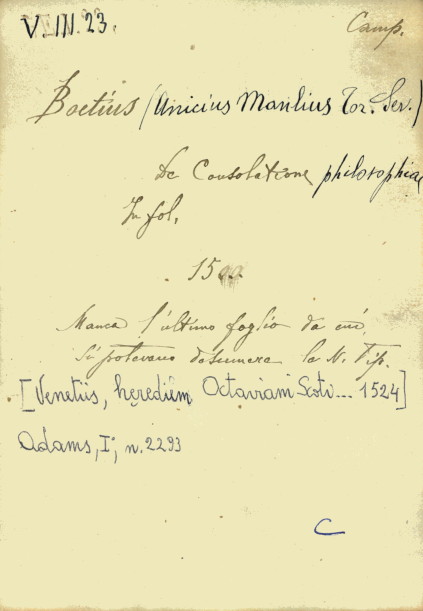 V. III. 23.
Camp.
Boetius (Anicius Manlius Tor. Sev.)
De Consolatione philosophiae
In fol.
15
Manca l'ultimo foglio da cui
si potevano desumere le N. Tip.
[Venetiis, heredum Octaviani Scoti... 1524]
Adams, I, n. 2293
C